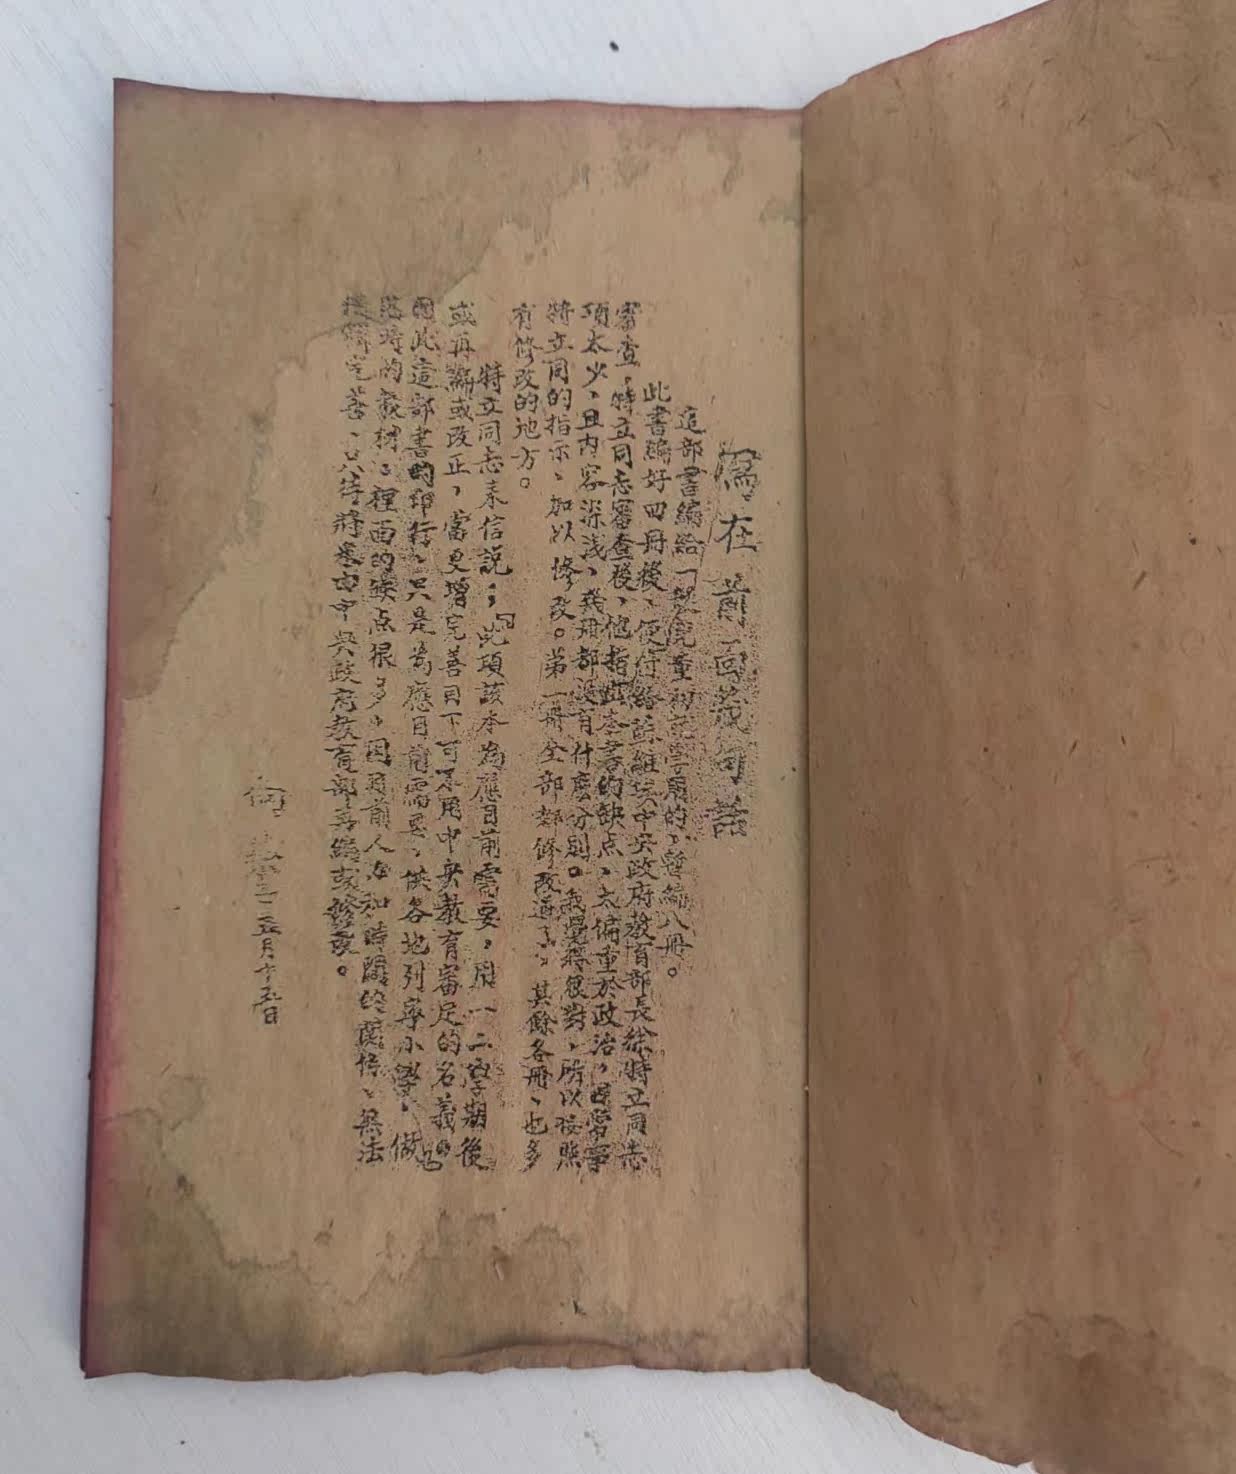 寫在前面幾句話
這部書編給一般兒童初入學用的，暫編八冊。
此書編好四冊後，便付給蘇維埃中央政府教育部長徐特立同志
審查，特立同志審查後，他指出本書的缺点，太偏重於政治，日常事
項太少，且內容深淺，幾冊都没有什麼分別。我覺得很對，所以按照
特立同的指示，加以修改。第一冊全部都修改過了，其餘各冊，也多
有修改的地方。
特立同志來信説；「此項該本為應目前需要，用一二學期後
或再編或改正，當更增完善目下可不用中央教育審定的名義」
因此這部書的印行，只是為應目前需要，供各地列寧小學，做
臨時的教材。裡面的缺点很多，因目前人力和時間的關係，無法
使牠完善，只待將來由中央政府教育部去編或修改。
三二五月十五日